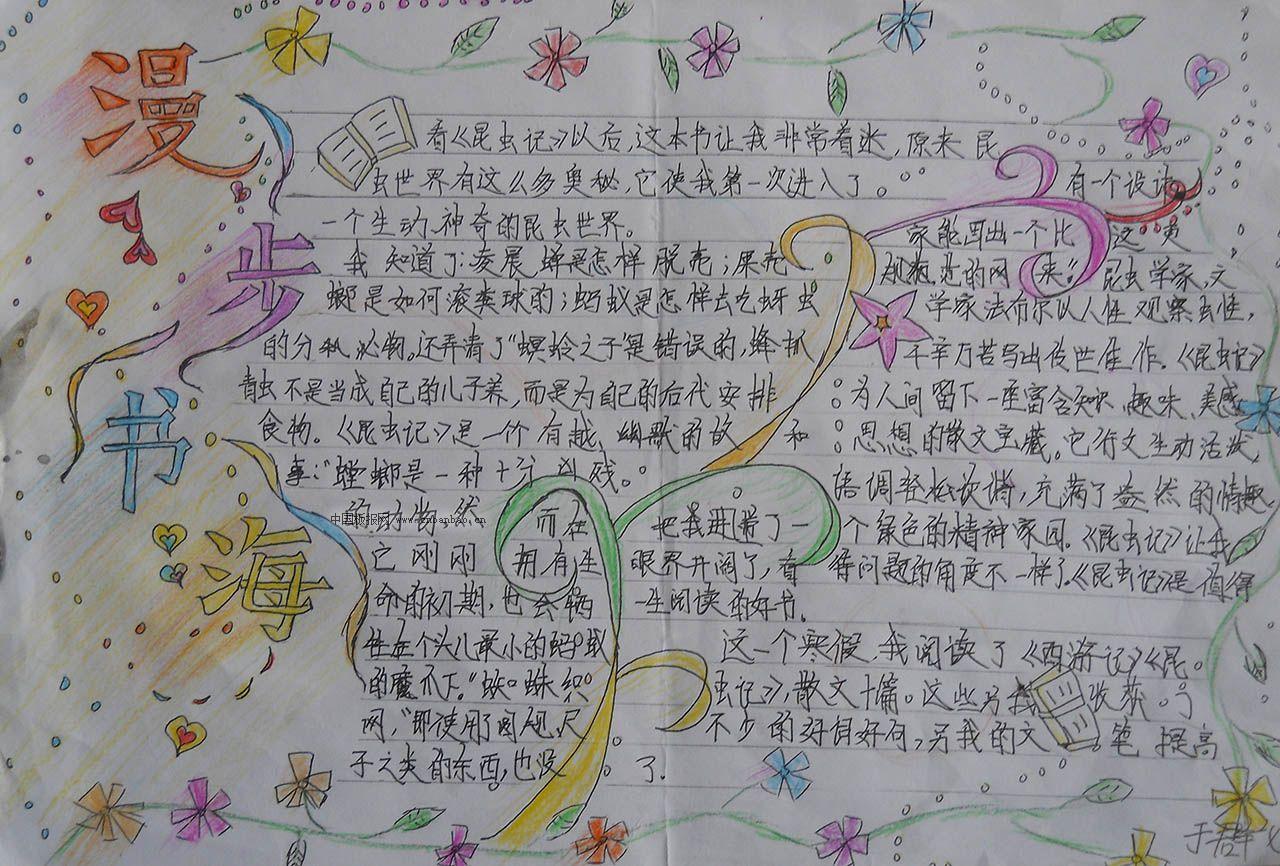 漫
步
书
海
看《昆虫记》以后,这本书让我非常着迷,原来昆
虫世界有这么多奥秘,它使我第一次进入了
一个生动、神奇的昆虫世界。
我知道了:凌晨蝉是怎样脱壳;
螂是如何滚粪球的;蚂蚁是怎样去吃蚜虫
的分泌物。还弄清了“螟蛉之子”是错误的,蜂抓
青虫不是当成自己的儿子养,而是为自己的后代安排
食物。《昆虫记》是一个有趣、的故
事:“螳螂是一种十分凶残
的动物,然
它刚刚
命的初期,也会牺
牲在个头儿最小的蚂蚁
的魔爪下。”“蜘蛛织
网,”即使用了圆规、尺
子之类的东西,也没
有一个设计
家能画出一个比
规范的网来”
而在
拥有生
和
这类
昆虫学家、文
学家法布尔以人性观察虫性,
千辛万苦写出传世佳作。《昆虫记》
为人间留下一座富含知识、趣味、美感
思想的散文宝藏。它行文生动活泼,
语调轻松诙谐,充满了盎然的情趣
把我带了一
个绿色的精神家园。《昆虫记》让我
眼界开阔了,看
待问题的角度不一样了《昆虫记》是值得
一生阅读的好书。
这一个寒假,我阅读了《西游记》《昆
虫记》,散文十篇。这些另我收获了
不少的好词好句,另我的文笔提高
了.
中国板报网 www.zgbanbao.cn